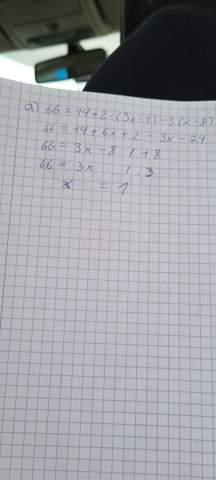 a) 66 = 14 + 2 · (3x - 1) - 3 (x - 8)
66 = 14 + 6x + 2 - 3x - 24
66 = 3x - 8 / + 8
66 = 3x / : 3
x = 1